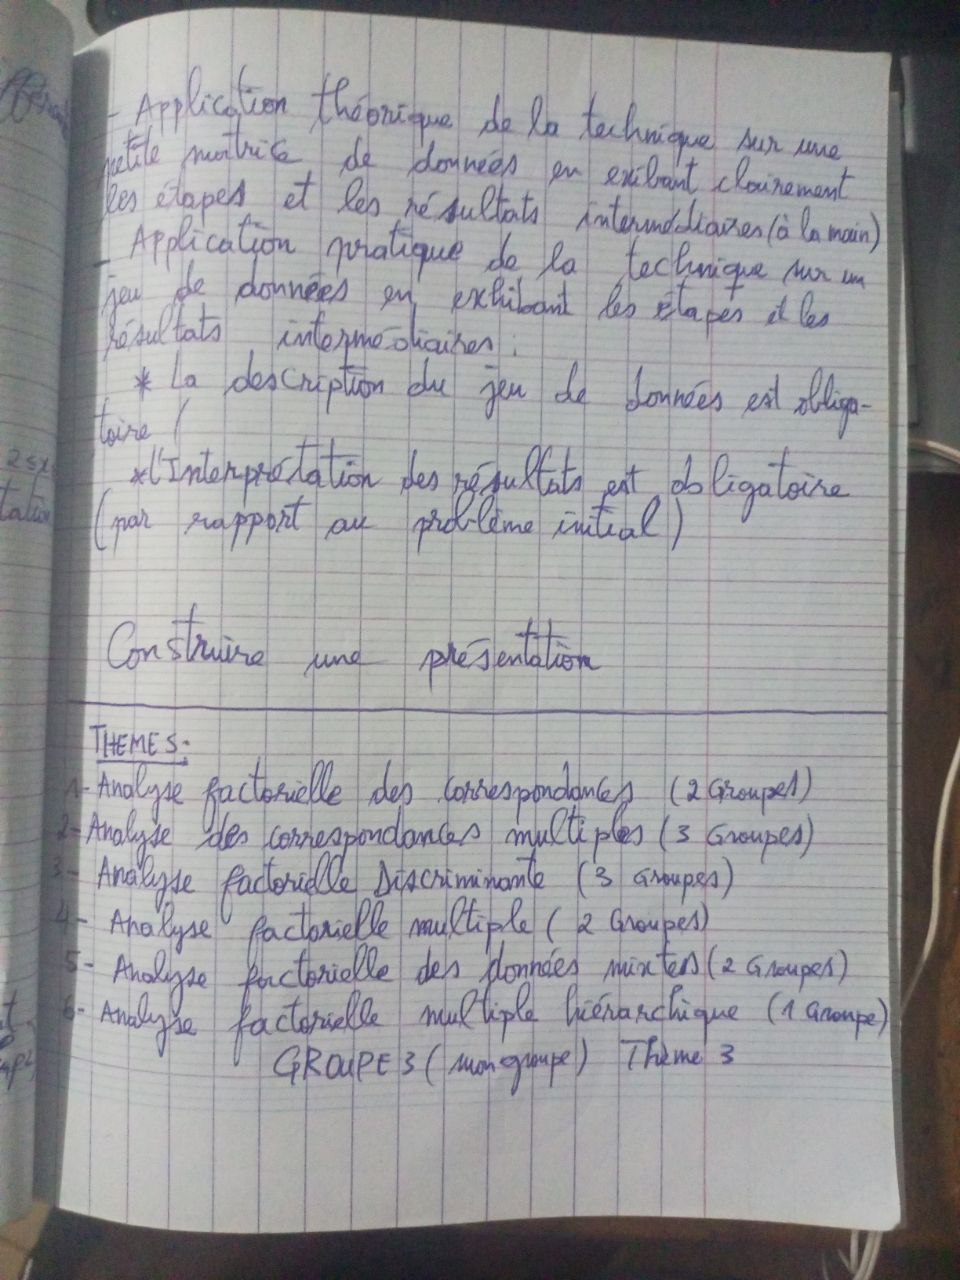 - Application théorique de la technique sur une
petite matrice de données en exibant clairement
les étapes et les résultats intermédiaires (à la main)
- Application pratique de la technique sur un
jeu de données en exhibant les étapes et les
résultats intermédiaires.
* La description du jeu de données est obliga-
toire (
* l'Interprétation des résultats est obligatoire
(par rapport au problème initial)
Construire une présentation
THEMES:
1- Analyse factorielle des correspondances (2 Groupes)
2- Analyse des correspondances multiples (3 Groupes)
3- Analyse factorielle Discriminante (3 Groupes)
4- Analyse factorielle multiple (2 Groupes)
5- Analyse factorielle des données mixtes (2 Groupes)
6- Analyse factorielle multiple hiérarchique (1 Groupe)
GROUPE 3 (mon groupe) Thème 3